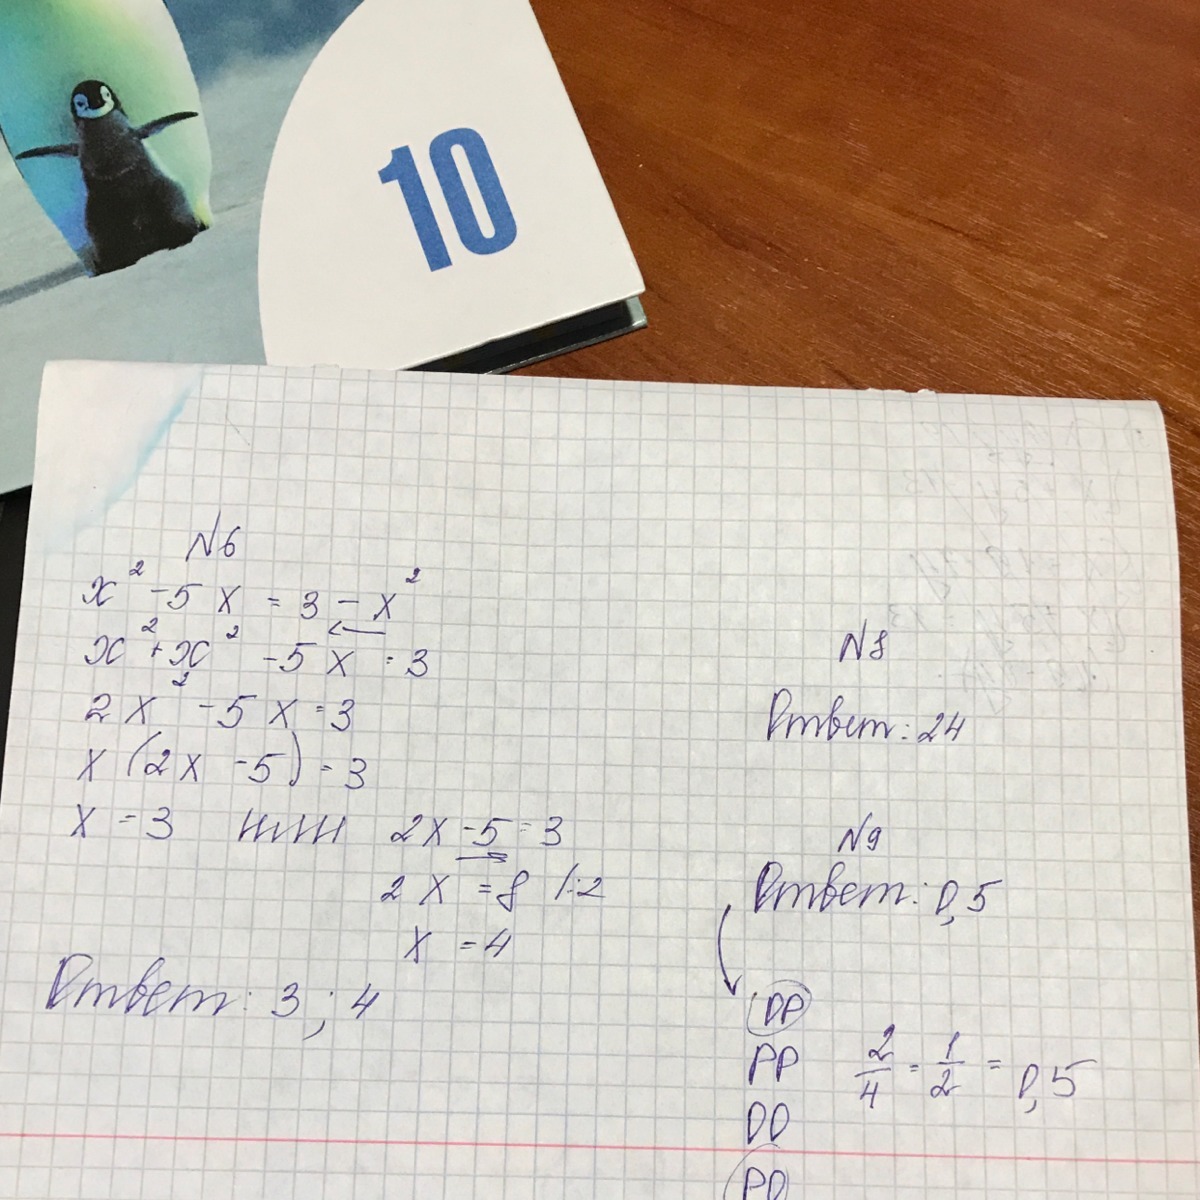 10
N6
x² - 5x = 3 - x²
x² + x² - 5x = 3
2x² - 5x = 3
x (2x - 5) = 3
x = 3 или 2x - 5 = 3
2x = 8 /:2
x = 4
Ответ: 3; 4
N8
Ответ: 24
N9
Ответ: 0,5
ОР
РР 2/4 = 1/2 = 0,5
ОО
РО